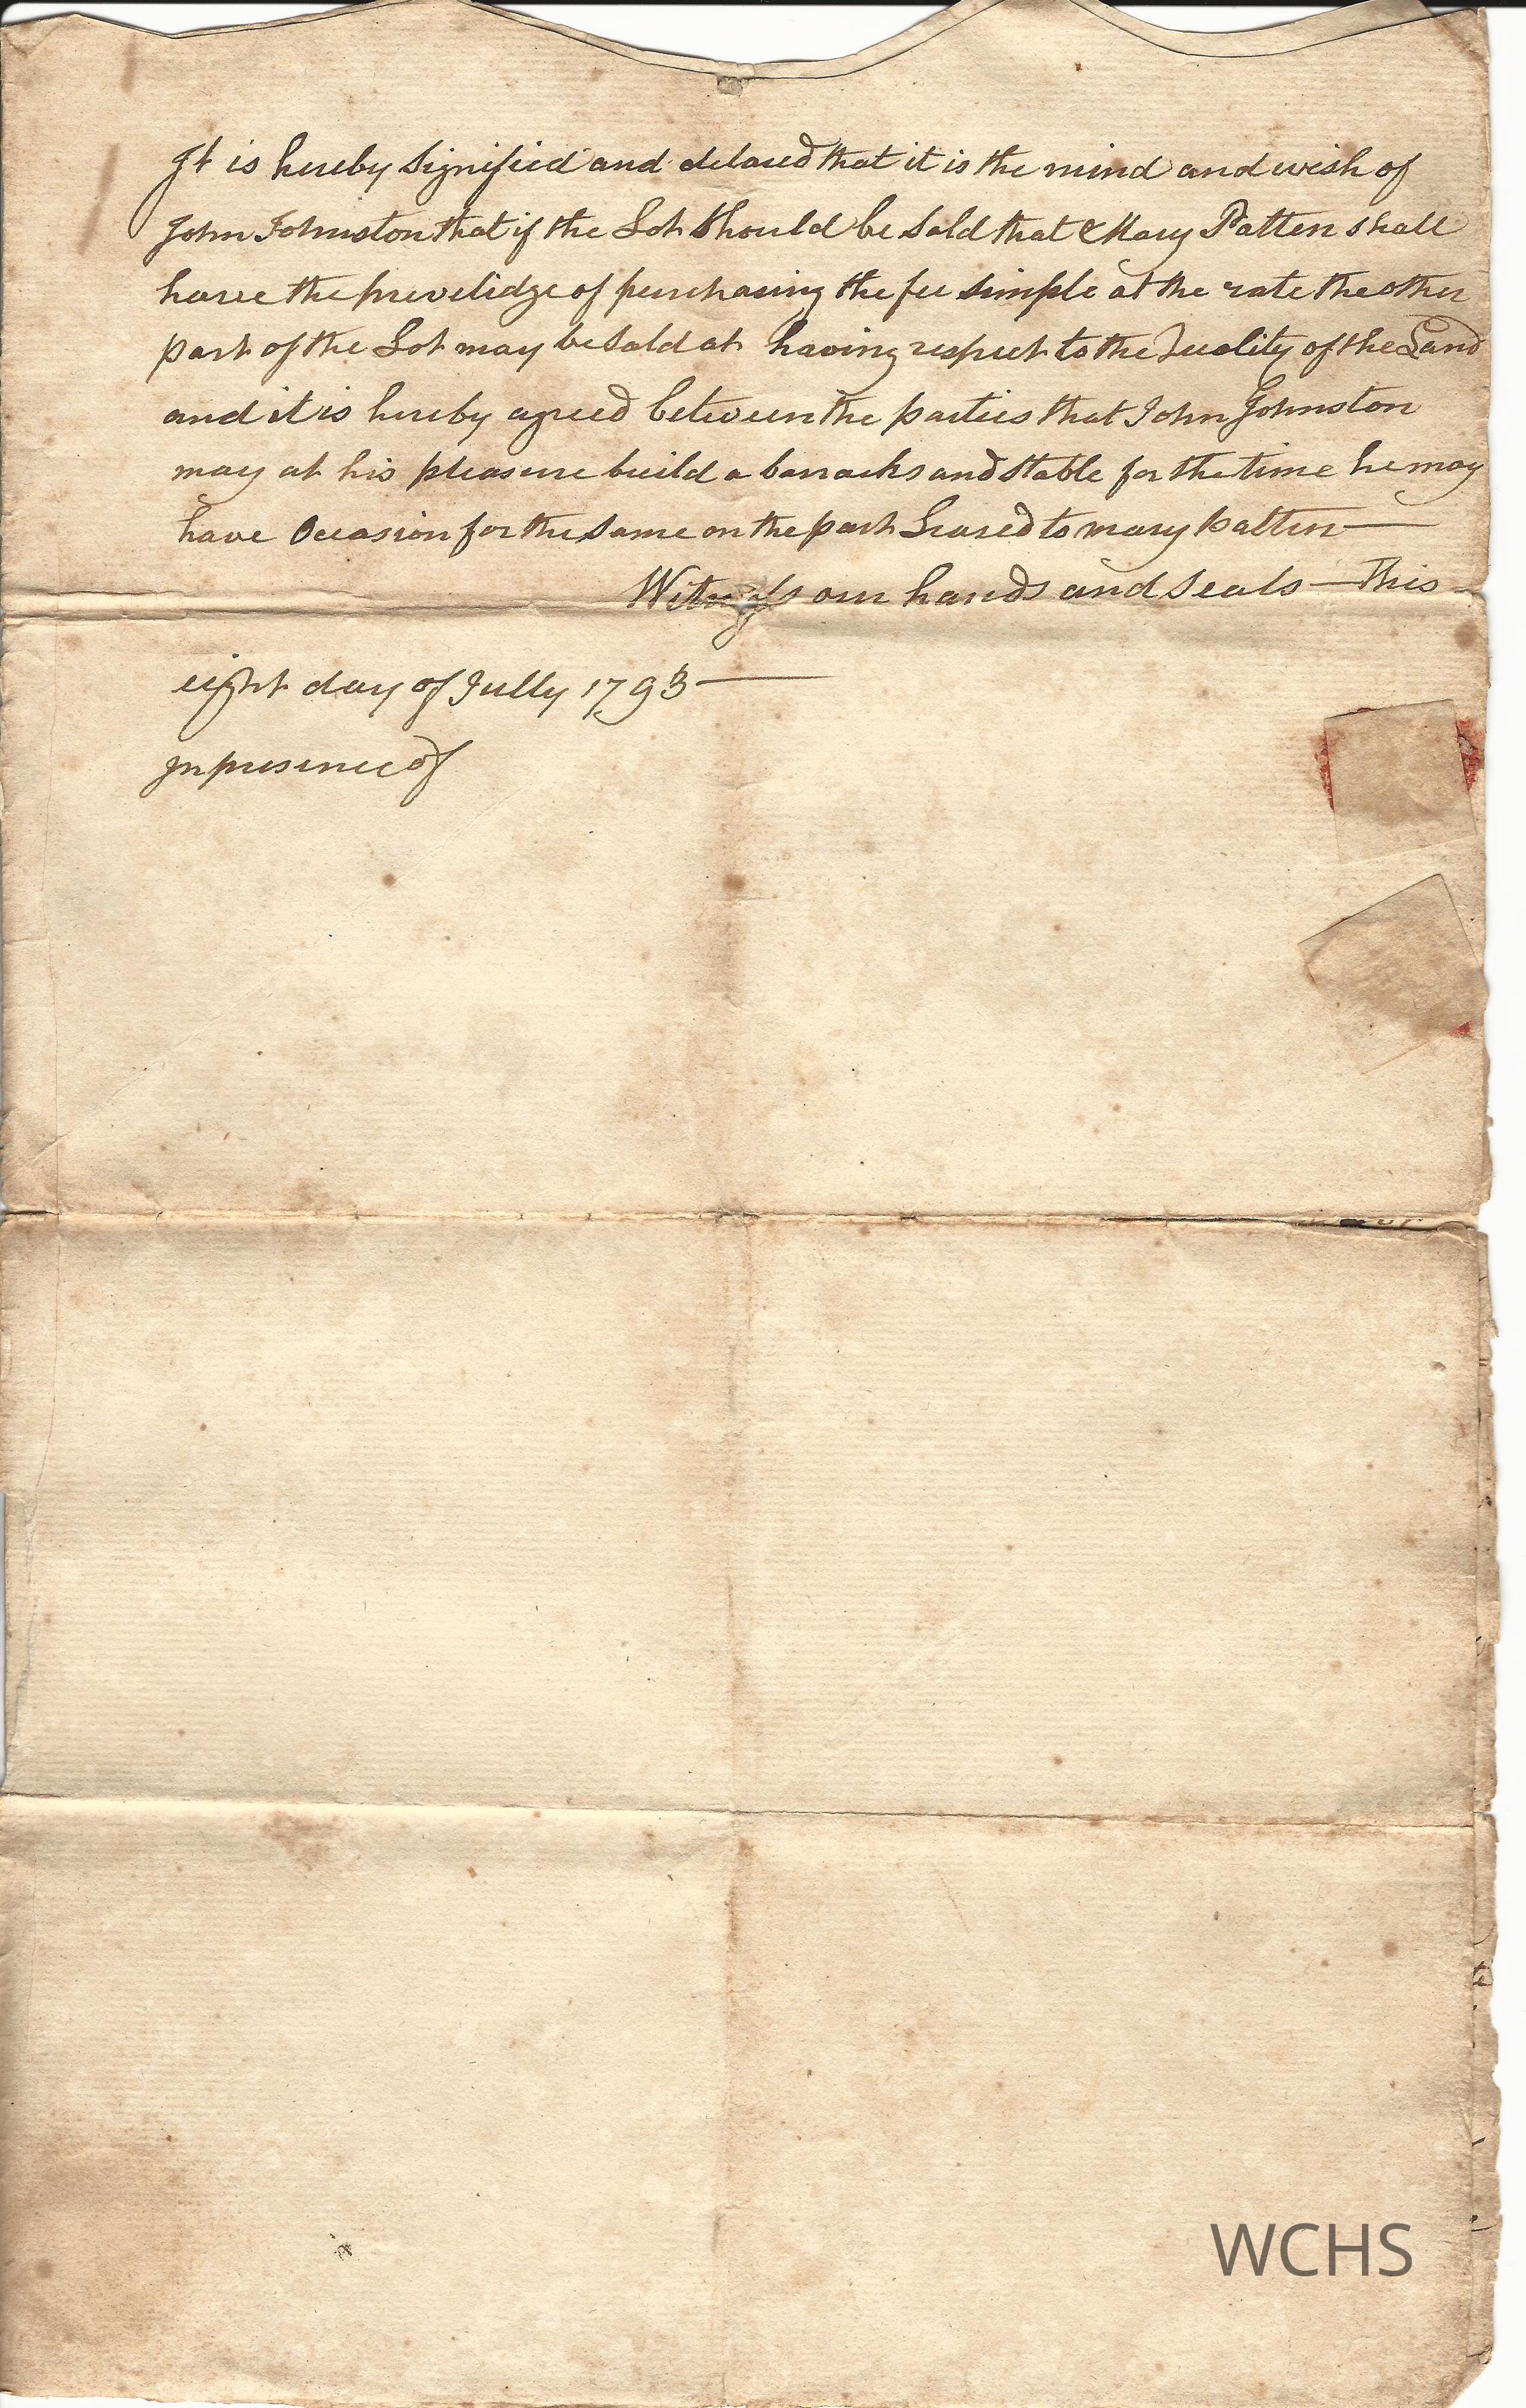 It is hereby Signified and delared that it is the mind and wish of
John Johnston that if the Lot Should be Sold that Mary Patten shall
have the previlidge of purchasing the fee simple at the rate the other
part of the Lot may be Sold at having respect to the Quality of the Land
and it is hereby agreed between the parties that John Johnston
may at his pleasure build a barracks and Stable for the time he may
have Occasion for the Same on the part Leased to mary patten —
Witness our hands and Seals — This
eight day of Jully 1793 —
In presence of
WCHS